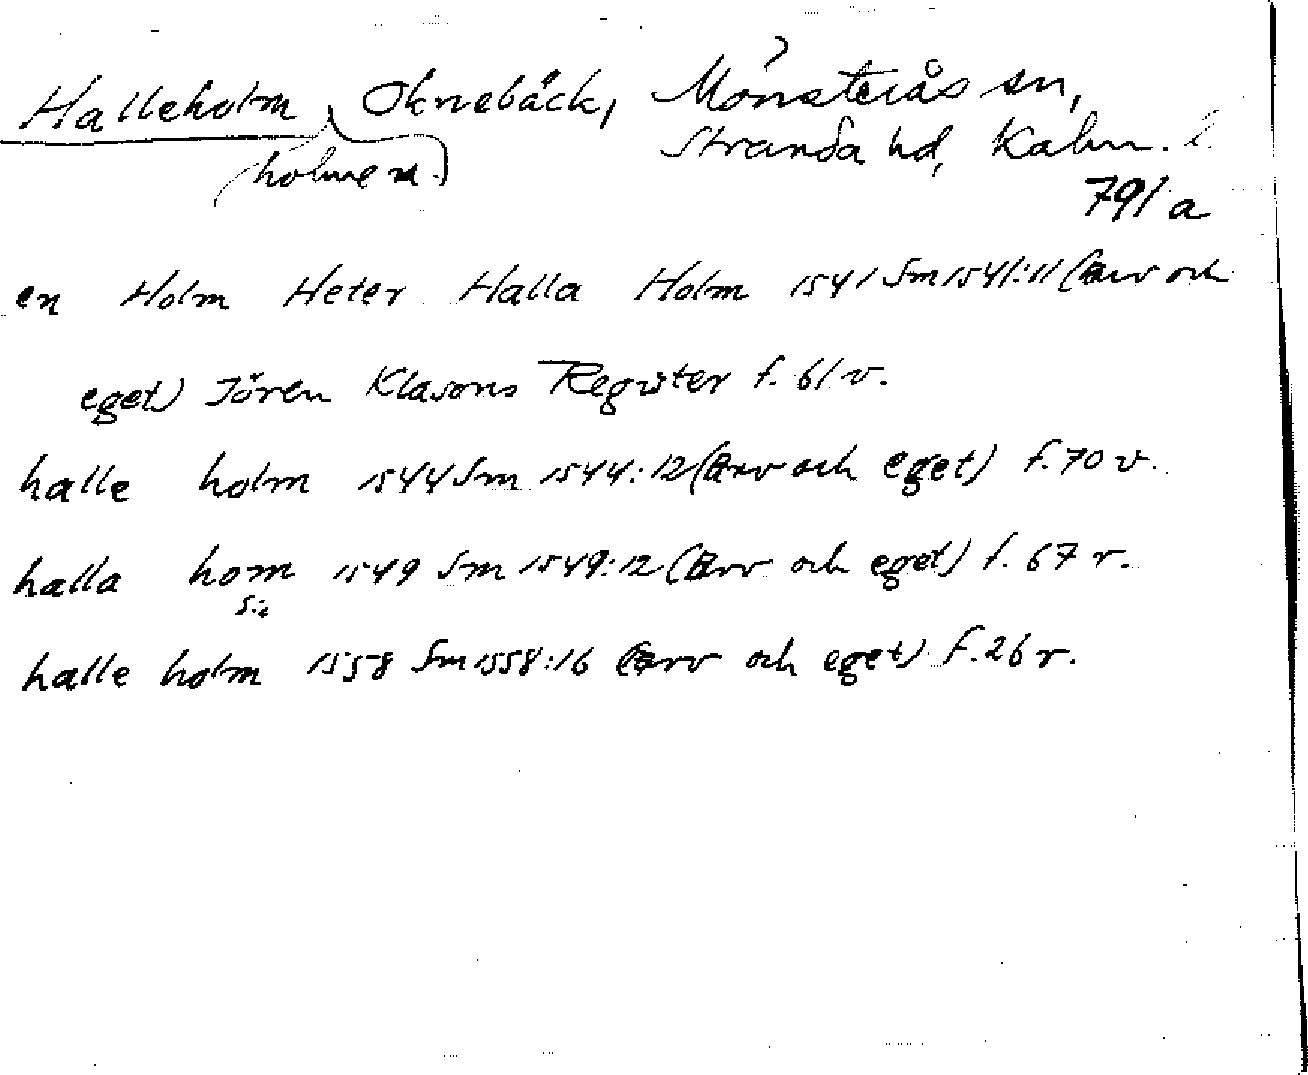 Halleholm, Oknebäck, Mönsterås sn,
(holmen.) Stranda hd, Kalm. l.
791 a
en Holm Heter Halla Holm 1541 Sm 1541:11 (Arv och
eget) Jören Klasons Register f. 61 v.
halle holm 1544 Sm 1544:12 (Arv och eget) f. 70 v.
halla hom 1549 Sm 1549:12 (Arv och eget) f. 67 r.
sic
halle holm 1558 Sm 1558:16 (Arv och eget) f. 26 r.